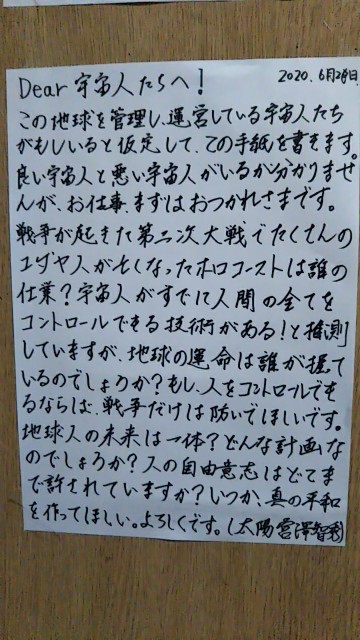 Dear 宇宙人たちへ!
2020.6月28日.
この地球を管理し、運営している宇宙人たち
がもしいると仮定して、この手紙を書きます。
良い宇宙人と悪い宇宙人がいるか分かりませ
んが、お仕事、まずはおつかれさまです。
戦争が起きた第二次大戦でたくさんの
ユダヤ人が亡くなったホロコーストは誰の
仕業?宇宙人がすでに人間の全てを
コントロールできる技術がある!と推測
していますが、地球の運命は誰が握って
いるのでしょうか?もし、人をコントロールでき
るならば、戦争だけは防いでほしいです。
地球人の未来は一体?どんな計画な
のでしょうか?人の自由意志はどこま
で許されていますか?いつか、真の平和
を作ってほしい。よろしくです。(太陽宮澤智秀)